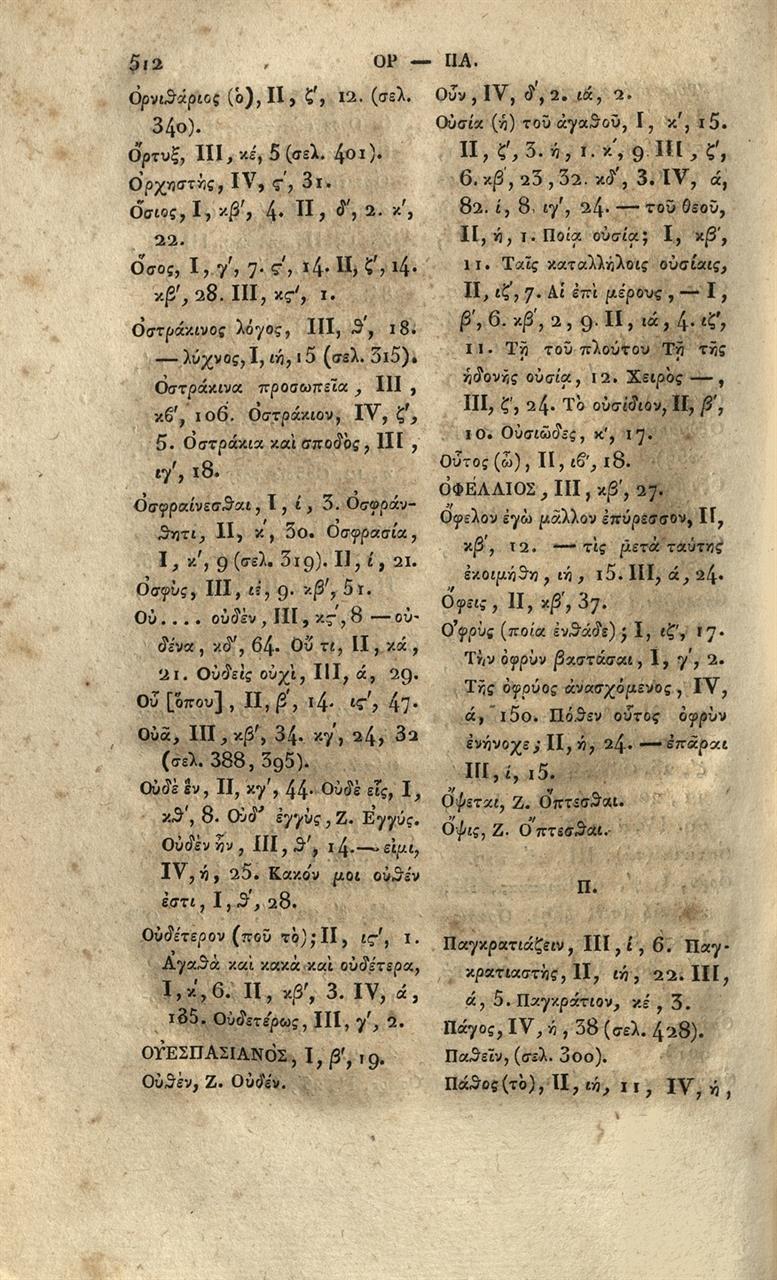 512 ΟΡ — ΠΑ.
Ὀρνιθάριος (ὁ), II, ζ′, 12. (σελ.
340).
Ὄρτυξ, III, κέ, 5 (σελ. 401).
Ὀρχηστὴς, IV, ς′, 31.
Ὅσιος, I, κβ′, 4. II, δ′, 2. κ′,
22.
Ὅσος, I, γ′, 7. ς′, 14. II, ζ′, 14.
κβ′, 28. III, κς′, 1.
Ὀστράκινος λόγος, III, θ′, 18.
— λύχνος, I, ιή, 15 (σελ. 315).
Ὀστράκινα προσωπεῖα, III,
κβ′, 106. Ὀστράκιον, IV, ζ′,
5. Ὀστράκια καὶ σποδὸς, III,
ιγ′, 18.
Ὀσφραίνεσθαι, I, ί, 3. Ὀσφράν-
θητι, II, κ′, 30. Ὀσφρασία,
I, κ′, 9 (σελ. 319). II, ί, 21.
Ὀσφὺς, III, ιέ, 9. κβ′, 51.
Οὐ.... οὐδὲν, III, κς′, 8 — οὐ-
δένα, κδ′, 64. Οὔ τι, II, κά,
21. Οὐδεὶς οὐχὶ, III, ά, 29.
Οὗ [ὅπου], II, β′, 14. ις′, 47.
Οὐᾶ, III, κβ′, 34. κγ′, 24, 32
(σελ. 388, 395).
Οὐδὲ ἓν, II, κγ′, 44. Οὐδὲ εἷς, I,
κθ′, 8. Οὐδ' ἐγγὺς, Ζ. Ἐγγύς.
Οὐδὲν ἦν, III, θ′, 14. — εἰμι,
IV, ή, 25. Κακόν μοι οὐθέν
ἐστι, I, θ′, 28.
Οὐδέτερον (ποῦ τὸ); II, ις′, 1.
Ἀγαθὰ καὶ κακὰ καὶ οὐδέτερα,
I, κ′, 6. II, κβ′, 3. IV, ά,
135. Οὐδετέρως, III, γ′, 2.
ΟΥΕΣΠΑΣΙΑΝΟΣ, I, β′, 19.
Οὐθὲν, Ζ. Οὐδέν.
Οὖν, IV, δ′, 2. ιά, 2.
Οὐσία (ἡ) τοῦ ἀγαθοῦ, I, κ′, 15.
II, ζ′, 3. ή, 1. κ′, 9. III, ζ′,
6. κβ′, 23, 32. κδ′, 3. IV, ά,
82. ί, 8. ιγ′, 24. — τοῦ θεοῦ,
II, ή, 1. Ποία οὐσία; I, κβ′,
11. Ταῖς καταλλήλοις οὐσίαις,
II, ιζ′, 7. Αἱ ἐπὶ μέρους, — I,
β′, 6. κβ′, 2, 9. II, ιά, 4. ιζ′,
11. Τῇ τοῦ πλούτου Τῇ τῆς
ἡδονῆς οὐσίᾳ, 12. Χειρὸς —,
III, ζ′, 24. Τὸ οὐσίδιον, II, β′,
10. Οὐσιῶδες, κ′, 17.
Οὗτος (ὦ), II, ιθ′, 18.
ὈΦΕΛΛΙΟΣ, III, κβ′, 27.
Ὄφελον ἐγὼ μᾶλλον ἐπύρεσσον, II,
κβ′, 12. — τὶς μετὰ ταύτης
ἐκοιμήθη, ιή, 15. III, ά, 24.
Ὄφεις, II, κβ′, 37.
Ὀφρὺς (ποία ἐνθάδε); I, ιζ′, 17.
Τὴν ὀφρὺν βαστάσαι, I, γ′, 2.
Τῆς ὀφρύος ἀνασχόμενος, IV,
ά, 150. Πόθεν οὗτος ὀφρὺν
ἐνήνοχε; II, ή, 24. — ἐπᾶραι
III, ί, 15.
Ὄψεται, Ζ. Ὄπτεσθαι.
Ὄψις, Ζ. Ὄπτεσθαι.
Π.
Παγκρατιάζειν, III, ί, 6. Παγ-
κρατιαστὴς, II, ιή, 22. III,
ά, 5. Παγκράτιον, κέ, 3.
Πάγος, IV, ή, 38 (σελ. 428).
Παθεῖν, (σελ. 300).
Πάθος (τὸ), II, ιή, 11, IV, ή,